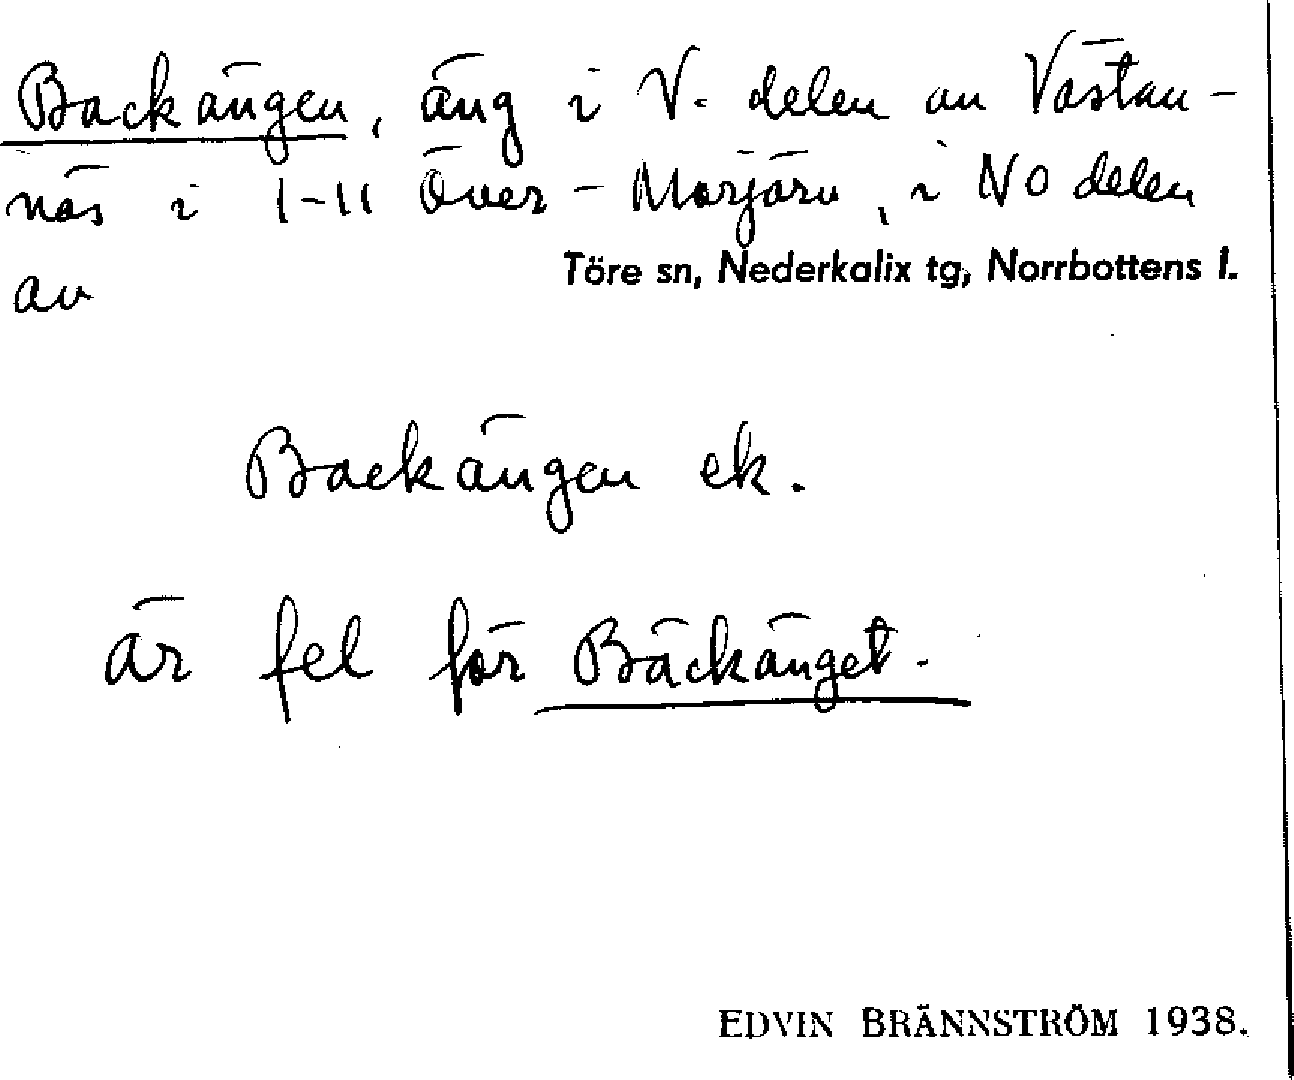 Backängen, äng i V. delen av Västan-
näs i 1-11 Över-Morjärv, i NO delen
av
Töre sn, Nederkalix tg, Norrbottens l.
Backängen ek.
är fel för Bäckänget.
EDVIN BRÄNNSTRÖM 1938.